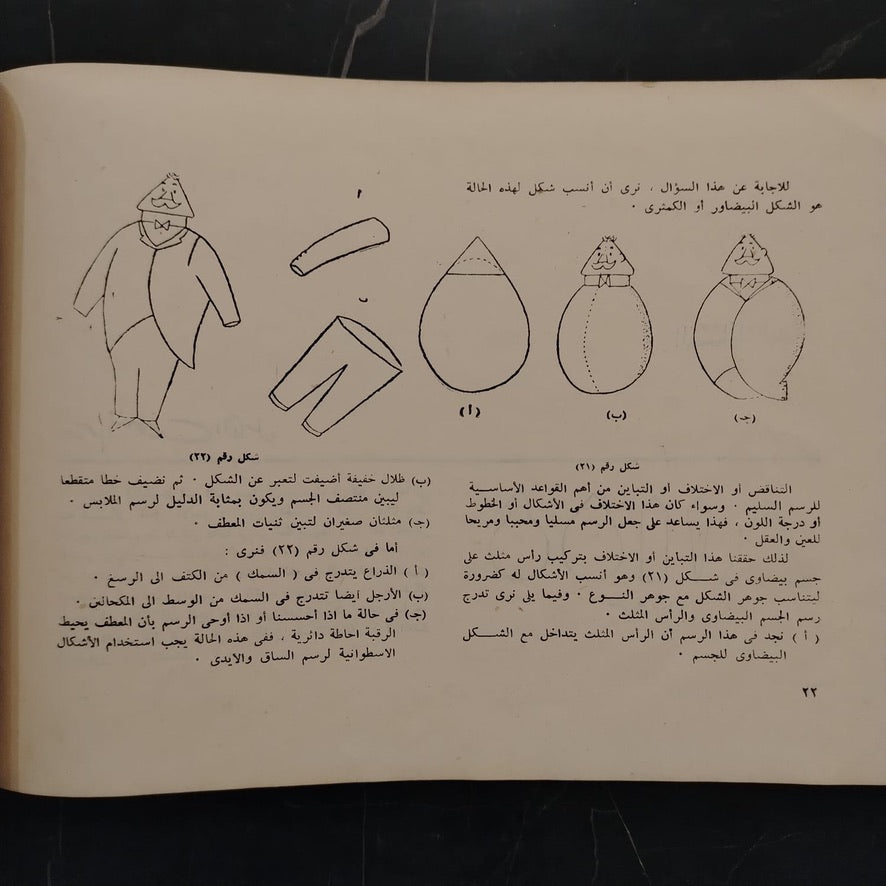 للاجابة عن هذا السؤال ، نرى أن أنسب شكل لهذه الحالة
هو الشكل البيضاور أو الكمثرى ·
(أ)
(ب)
(جـ)
شكل رقم (٢١)
التناقض أو الاختلاف أو التباين من أهم القواعد الأساسية
للرسم السليم · وسواء كان هذا الاختلاف فى الأشكال أو الخطوط
أو درجة اللون ، فهذا يساعد على جعل الرسم مسليا ومحببا ومريحا
للعين والعقل ·
لذلك حققنا هذا التباين أو الاختلاف بتركيب رأس مثلث على
جسم بيضاوى فى شكل (٢١) وهو أنسب الأشكال له كضرورة
ليتناسب جوهر الشكل مع جوهر النوع · وفيما يلى نرى تدرج
رسم الجسم البيضاوى والرأس المثلث ·
( أ ) نجد فى هذا الرسم أن الرأس المثلث يتداخل مع الشكل
البيضاوى للجسم ·
٢٢
أ
ب
شكل رقم (٢٢)
(ب) ظلال خفيفة أضيفت لتعبر عن الشكل · ثم نضيف خطا متقطعا
ليبين منتصف الجسم ويكون بمثابة الدليل لرسم الملابس ·
(جـ) مثلثان صغيران لتبين ثنيات المعطف ·
أما فى شكل رقم (٢٢) فنرى :
( أ ) الذراع يتدرج فى ( السمك ) من الكتف الى الرسغ ·
(ب) الأرجل أيضا تتدرج فى السمك من الوسط الى المكحالين ·
(جـ) فى حالة ما اذا أحسسنا أو اذا أوحى الرسم بأن المعطف يحيط
الرقبة احاطة دائرية ، ففى هذه الحالة يجب استخدام الأشكال
الاسطوانية لرسم الساق والايدى ·